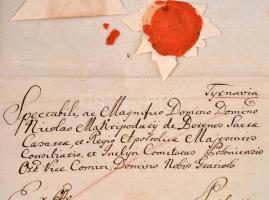 Tyrnavia
Spectabili, ac Magnifico Domino Domino
Nicolao Maktipodary de Berenes Sacræ
Cæsareæ, et Regio Apostolicæ Majestatis
Consiliario, et Inclyti Comitatus Posoniensis
Ord. Vice Comiti Domino Nobis Gratioso